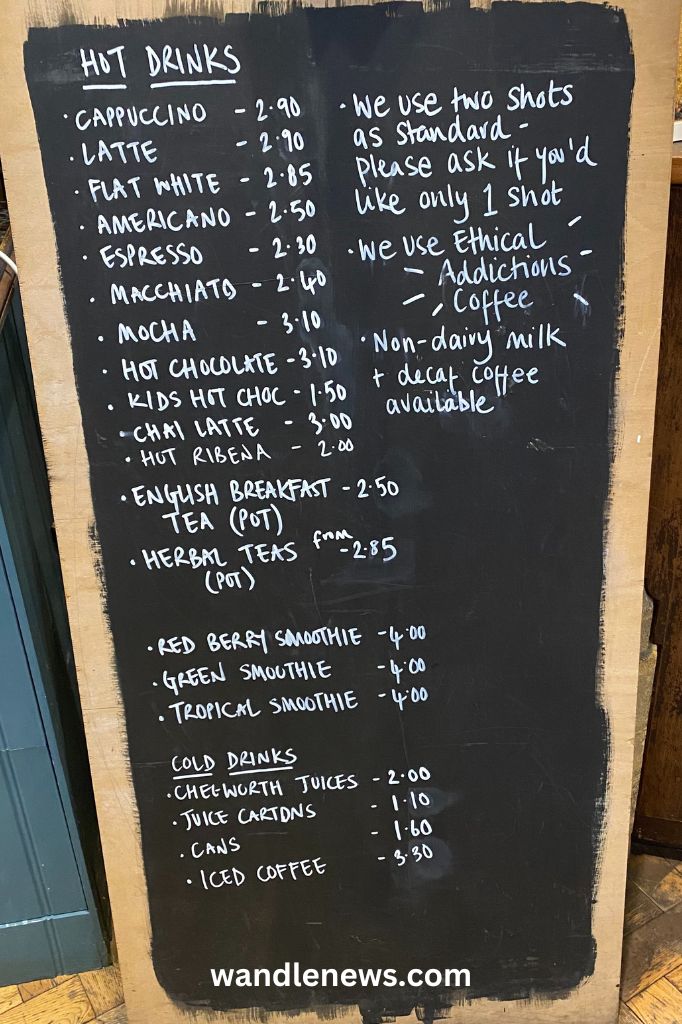 HOT DRINKS
· CAPPUCCINO - 2.90
· LATTE - 2.90
· FLAT WHITE - 2.85
· AMERICANO - 2.50
· ESPRESSO - 2.30
· MACCHIATO - 2.40
· MOCHA - 3.10
· HOT CHOCOLATE - 3.10
· KIDS HOT CHOC - 1.50
· CHAI LATTE - 3.00
· HOT RIBENA - 2.00
· ENGLISH BREAKFAST - 2.50
TEA (POT)
· HERBAL TEAS from - 2.85
(POT)
· RED BERRY SMOOTHIE - 4.00
· GREEN SMOOTHIE - 4.00
· TROPICAL SMOOTHIE - 4.00
COLD DRINKS
· CHEGWORTH JUICES - 2.00
· JUICE CARTONS - 1.10
· CANS - 1.60
· ICED COFFEE - 3.30
· We use two shots
as standard -
please ask if you'd
like only 1 shot
· We use Ethical
Addictions
Coffee
· Non-dairy milk
+ decaf coffee
available
wandlenews.com